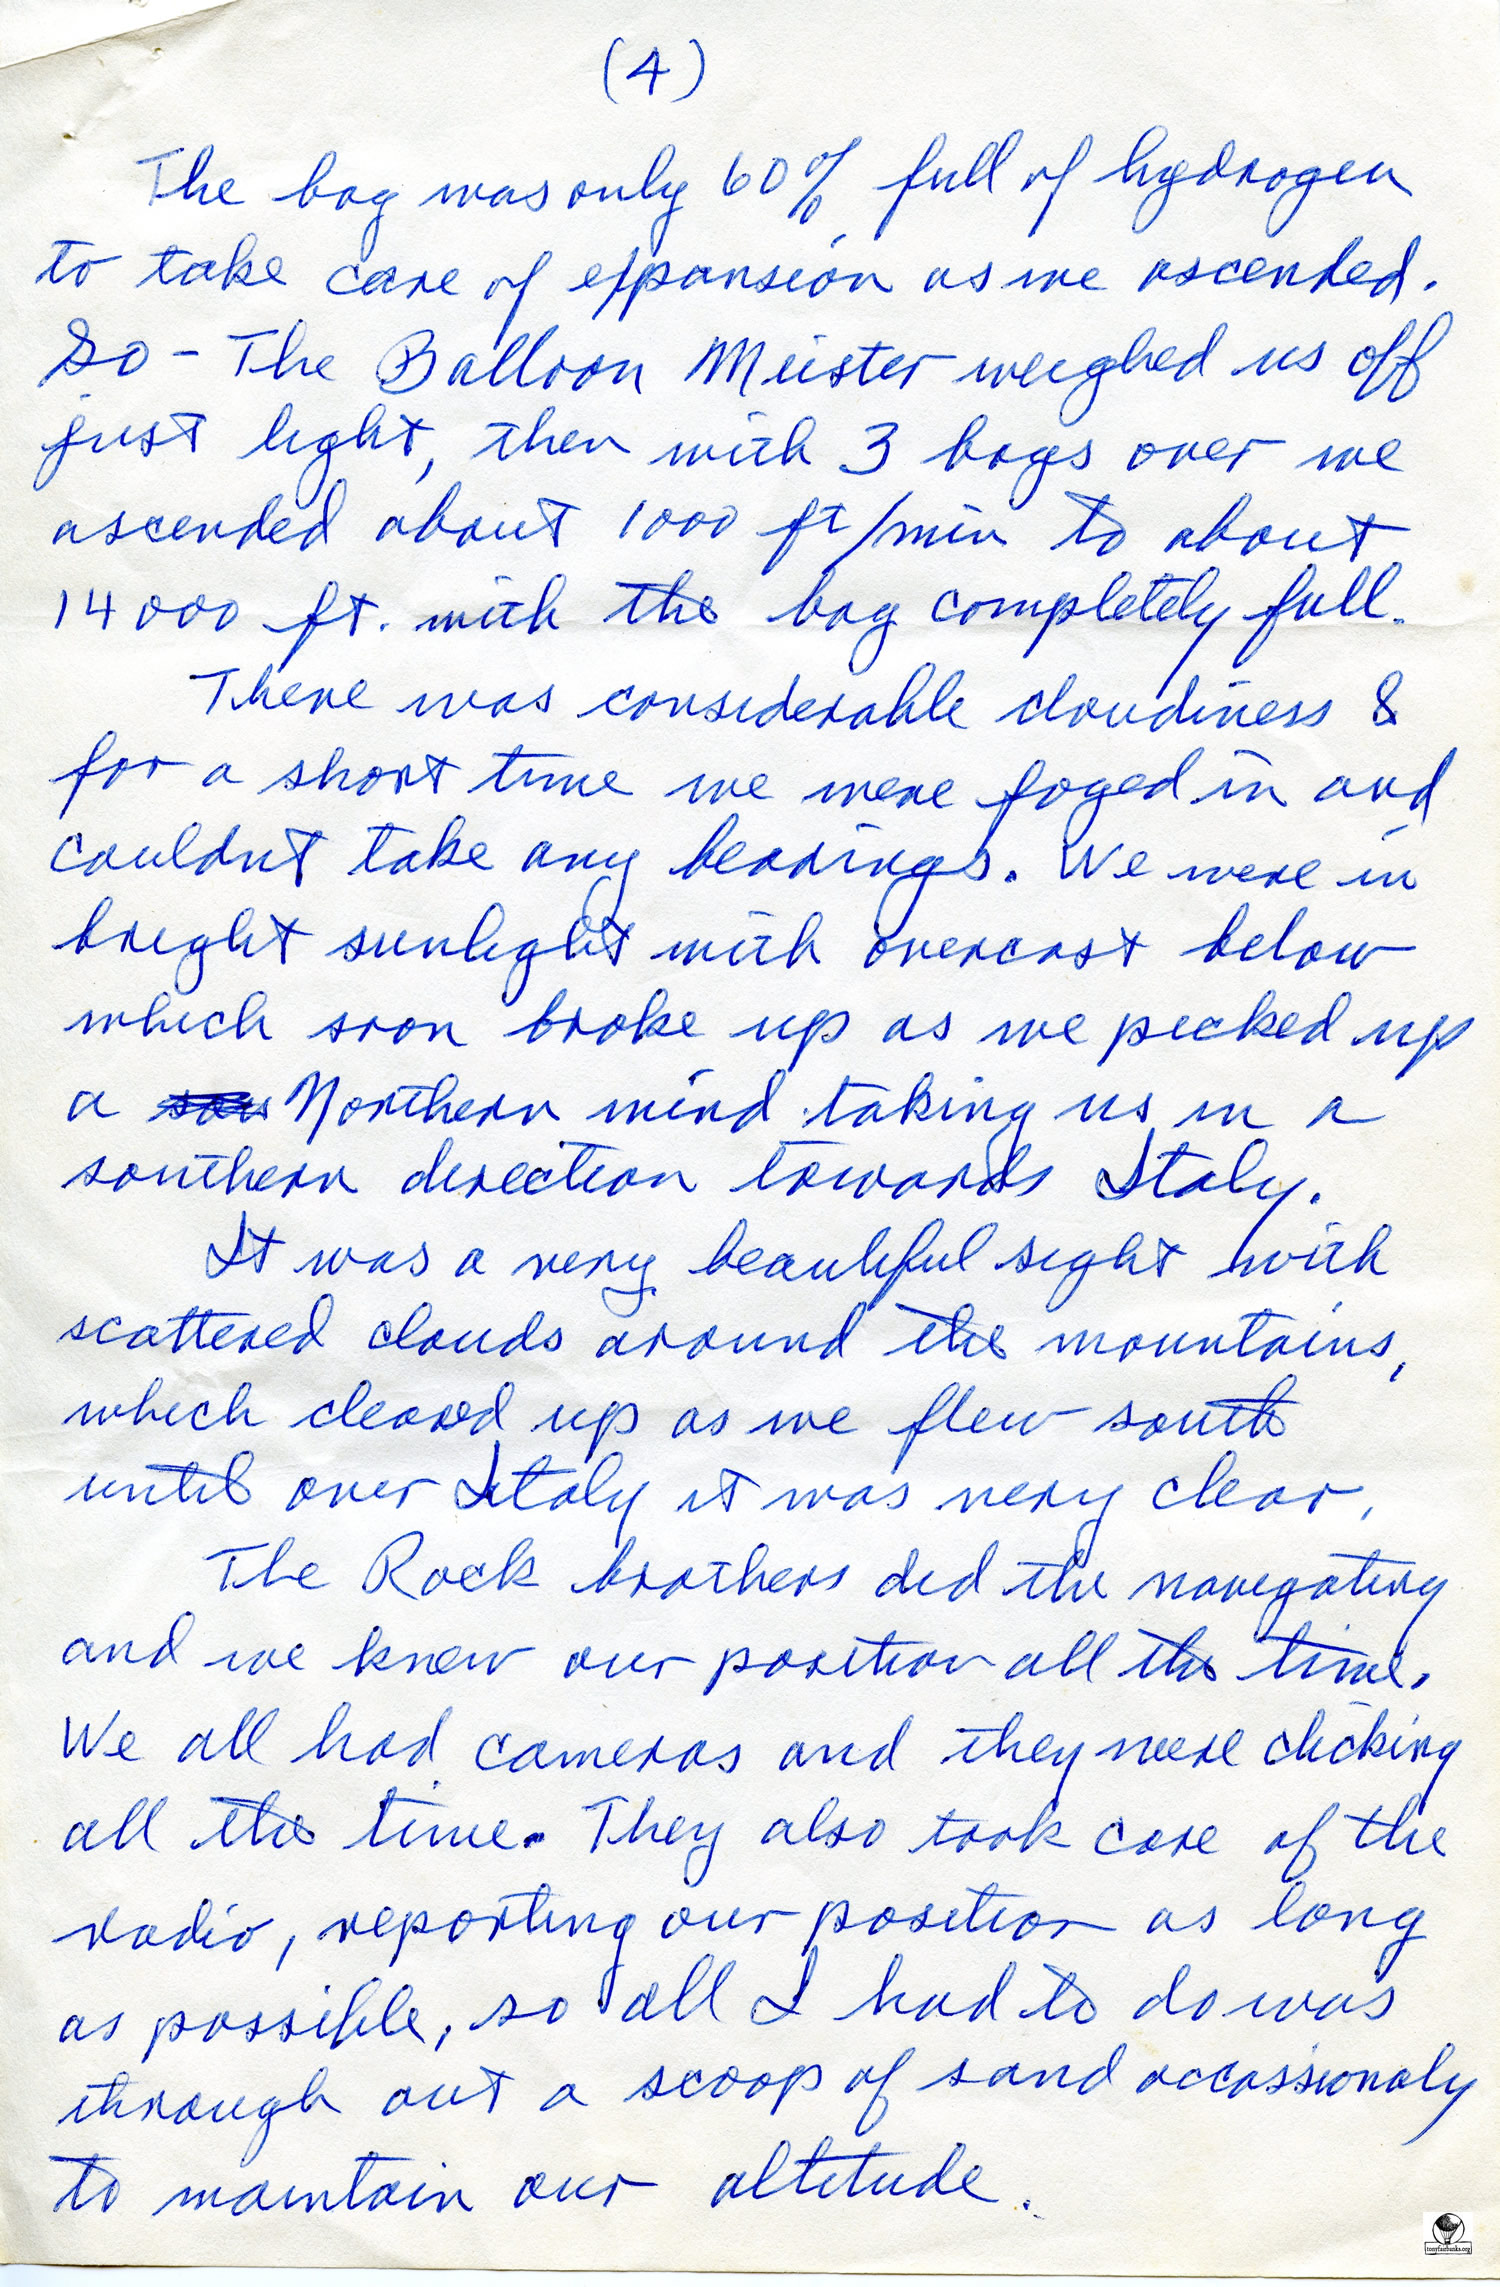 (4)
The bag was only 60% full of hydrogen
to take care of expansion as we ascended.
So - The Balloon Meister weighed us off
just light, then with 3 bags over we
ascended about 1000 ft/min to about
14000 ft. with the bag completely full.
There was considerable cloudiness &
for a short time we were foged in and
couldnt take any bearings. We were in
bright sunlight with overcast below
which soon broke up as we picked up
a Northern wind taking us in a
southern direction towards Italy.
It was a very beautiful sight with
scattered clouds around the mountains,
which cleared up as we flew south
until over Italy it was very clear.
The Rock brothers did the navigating
and we knew our position all the time.
We all had cameras and they were clicking
all the time. They also took care of the
radio, reporting our position as long
as possible, so all I had to do was
through out a scoop of sand occassionaly
to maintain our altitude.
tonyfairbanks.org